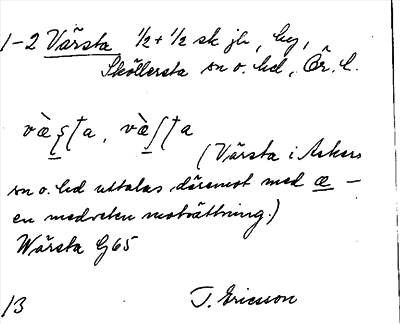 1-2 Värsta 1/2 + 1/2 sk jb, by,
Sköllersta sn o. hd, Ör. l.
(Värsta i Askers
sn o. hd uttalas däremot med æ —
en medveten motsättning.)
Wärsta G65
13 T. Ericsson